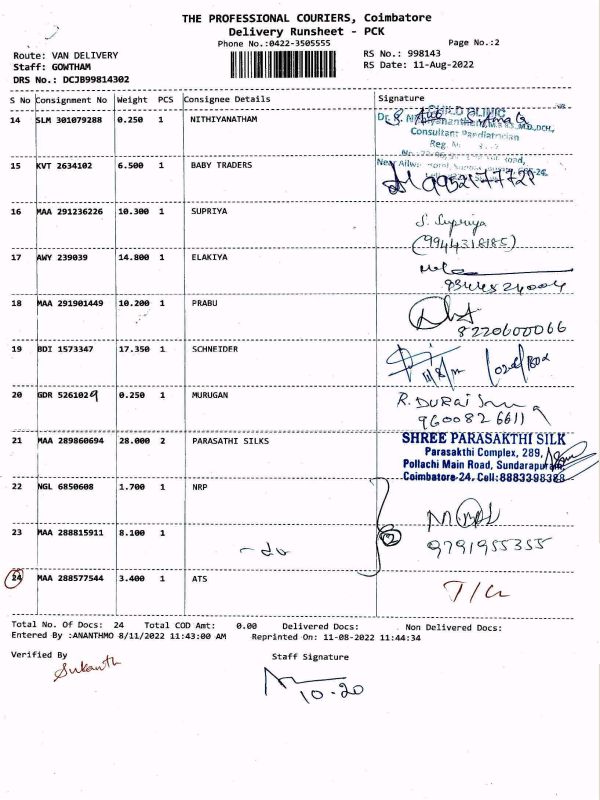 THE PROFESSIONAL COURIERS, Coimbatore
Delivery Runsheet - PCK
Phone No.:0422-3505555
Page No.:2
Route: VAN DELIVERY
RS No.: 998143
Staff: GOWTHAM
RS Date: 11-Aug-2022
DRS No.: DCJB99814302
S No Consignment No Weight PCS Consignee Details Signature
14 SLM 301079288 0.250 1 NITHIYANATHAM
CHILD CLINIC
Consultant Paediatrician
Reg. No
15 KVT 2634102 6.500 1 BABY TRADERS
16 MAA 291236226 10.300 1 SUPRIYA
S. Supriya
(9944318185)
17 AWY 239039 14.800 1 ELAKIYA
18 MAA 291901449 10.200 1 PRABU
8220600066
19 BDI 1573347 17.350 1 SCHNEIDER
20 GDR 5261029 0.250 1 MURUGAN
9600826611
21 MAA 289860694 28.000 2 PARASATHI SILKS
SHREE PARASAKTHI SILK
Parasakthi Complex, 289,
Pollachi Main Road, Sundarapuram
Coimbatore-24. Cell:8883398388
22 NGL 6850608 1.700 1 NRP
23 MAA 288815911 8.100 1
- do
2
9791955355
24 MAA 288577544 3.400 1 ATS
Total No. Of Docs: 24 Total COD Amt: 0.00 Delivered Docs: Non Delivered Docs:
Entered By :ANANTHMO 8/11/2022 11:43:00 AM Reprinted On: 11-08-2022 11:44:34
Verified By
Staff Signature
Sukanth
10-20